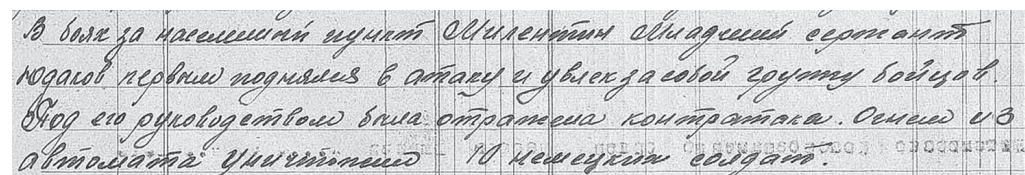 В боях за населенный пункт Милентин Младший сержант
Юдаков первым поднялся в атаку и увлек за собой группу бойцов.
Под его руководством была отражена контратака. Огнем из
автомата уничтожено 10 немецких солдат.